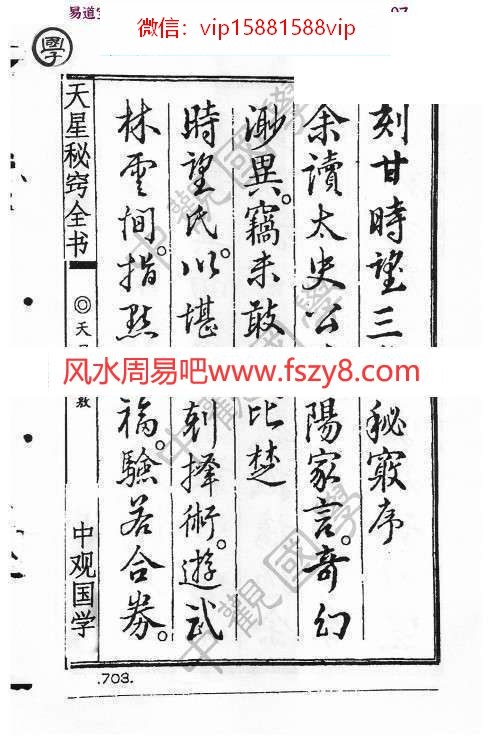 易道
微信：vip15881588vip
學
天星秘窍全书
◎天
中观国学
刻甘時望三
秘竅序
余讀太史公
陽家言。奇幻
渺異。竊未敢
比楚
時望氏。以堪
刺擇術。遊武
林雲間。指點
福。驗若合券。
风水周易吧www.fszy8.com
中觀國學
.703.